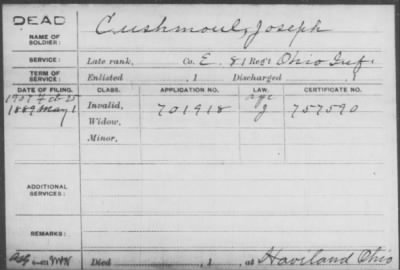 DEAD
NAME OF SOLDIER: Cushmoul, Joseph
SERVICE: Late rank, Co. E. 81 Reg't Ohio Inf.
TERM OF SERVICE: Enlisted , 1 Discharged , 1
DATE OF FILING. CLASS. APPLICATION NO. LAW. CERTIFICATE NO.
1907 Feb 25 age
1889 May 1 Invalid, 701918 g 757590
Widow,
Minor,
ADDITIONAL SERVICES:
REMARKS:
Died , 1 , at Haviland Ohio